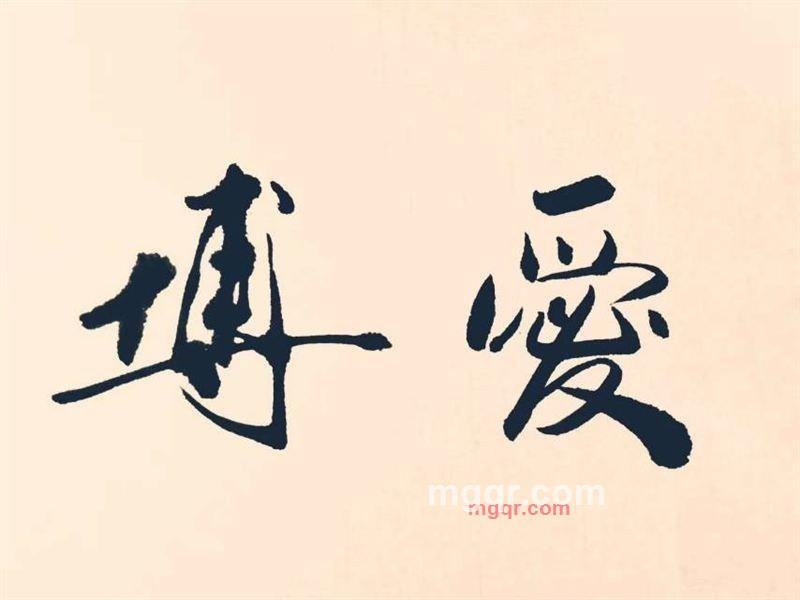 博愛
mgqr.com
mgqr.com